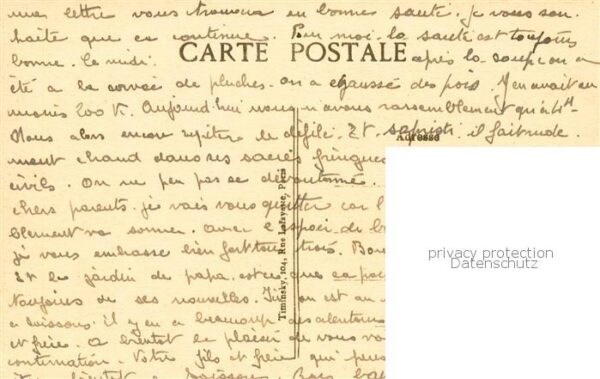 une lettre vous trouvera en bonne santé. je vous sou
haite que ça continue. Pour moi. la santé est toujours
bonne. Ce midi. après la soupe on a
CARTE POSTALE
été a la corvée de pluches. on a chaussé des pois. Y en avait au
moins 200 K. Aujourd'hui nous n'avons rassemblement qu'à 1H
Nous alors encore répéter le défilé. Et sapristi il fait rude.
Adresse
ment chaud dans ces sacrés fringues
civils. On ne peu pas se déboutonné.
chers parents. je vais vous quitter car l
blement va sonner. avec l'espoir de
je vous embrasse bien fort tous trois. Bon
Et le jardin de papa. est ce que ça pou
toujours de ses nouvelles. Ici on est au
a soissons. il y en a beaucoup des alentours
et frère. a bientôt le plaisir de vous vo
confirmation. Votre fils et frère qui pens
bientôt a Soissons. Bons bai
Timinsky, 104, Rue Lafayette, Paris
privacy protection
Datenschutz